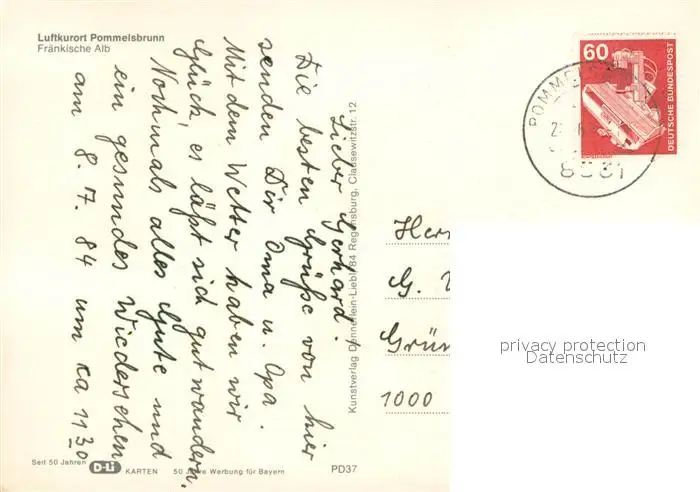 Luftkurort Pommelsbrunn
Fränkische Alb
Lieber Gerhard!
Die besten Grüße von hier
senden Dir Oma u. Opa.
Mit dem Wetter haben wir
Glück, es läßt sich gut wandern.
Nochmals alles Gute und
ein gesundes Wiedersehen
am 8.7.84 um ca 11³⁰
Kunstverlag Dennerlein-Liebl 84 Regensburg, Clausewitzstr. 12
60
DEUTSCHE BUNDESPOST
POMMELS
Herr
G.
Grün
1000
privacy protection
Datenschutz
Seit 50 Jahren
D-Li
KARTEN
50 Jahre Werbung für Bayern
PD37